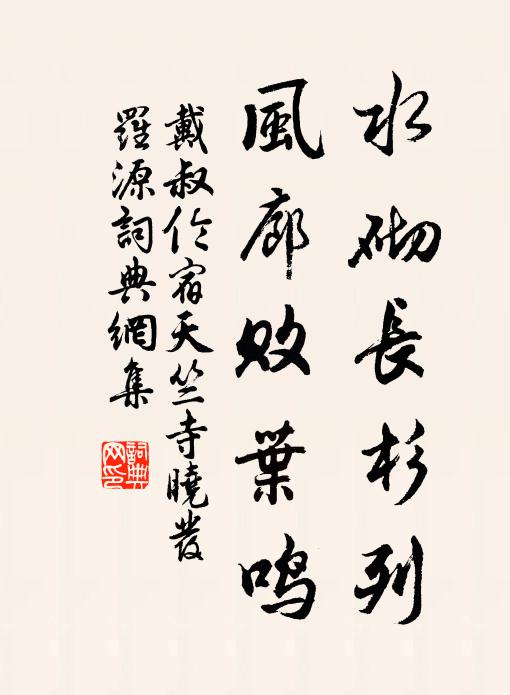 水砌長杉列
風廊敗葉鳴
戴叔伦宿天竺寺曉發
羅源詞典網集
詞典网印